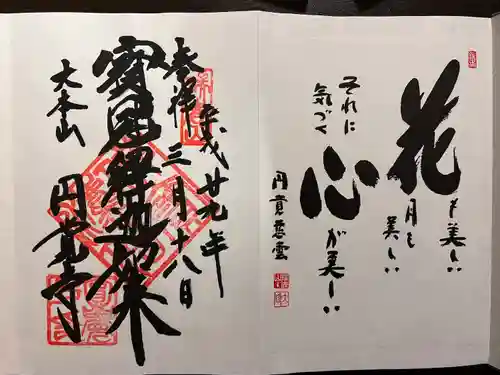 花も美しい
月も美しい
それに
気づく
心が美しい
円覚慈雲
奉拝
平成廿九年
三月十八日
寳冠釋迦如来
大本山
円覚寺